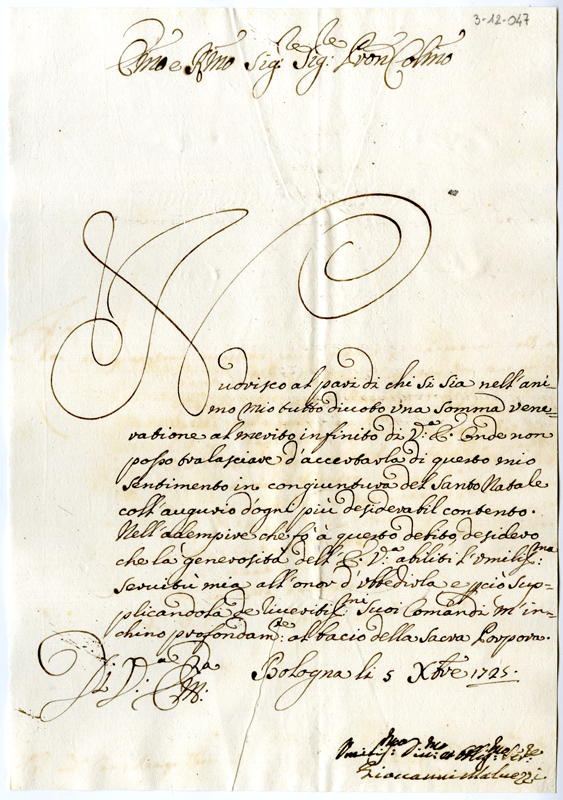 3-12-047
Em̃o e Rm̃o Sig.re Sig.re Pron Colmo
Nudrisco al pari di chi si sia nell'ani-
mo mio tutto divoto una somma vene-
ratione al merito infinito di V.ra E. Onde non
posso tralasciare d'accertarla di questo mio
sentimento in congiuntura del Santo Natale
coll'augurio d'ogni più desiderabil contento.
Nell'adempire che fò à questo debito, desidero
che la generosità dell'E. V.ra abiliti l'umiliss.ma
servitù mia all'onor d'ubbidirla e p ciò sup-
plicandola de riveritiss.mi Suoi Comandi m'in-
chino profondam.te al bacio della Sacra Porpora.
Di V.ra Em.za Bologna li 5 Xbre 1725.
Umilis.mo Div.mo et Obblig.mo Ser.re
Giovanni Malvezzi